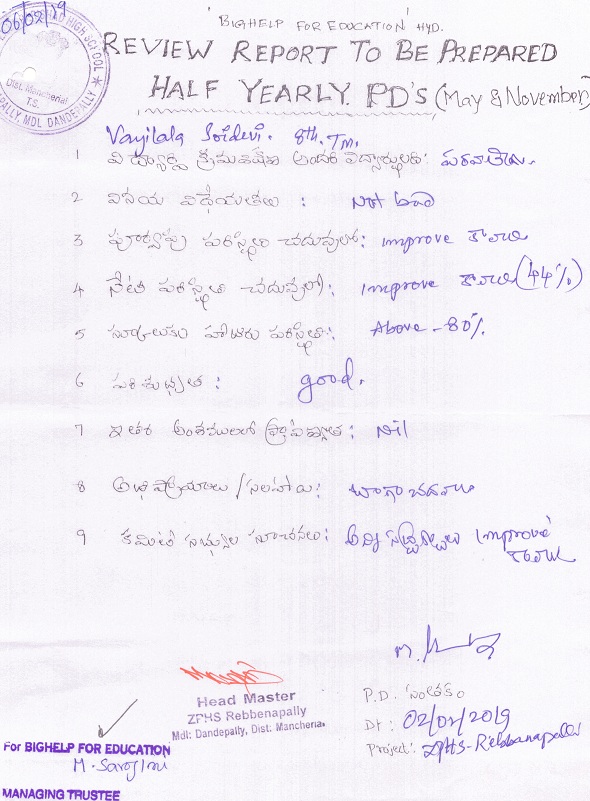 06/02/19
HIGH SCHOOL
Dist. Mancherial
T.S.
MDL. DANDEPALLY
'BIGHELP FOR EDUCATION' HYD.
REVIEW REPORT TO BE PREPARED
HALF YEARLY. PD'S (May & November)
Vayilala Sridevi. 8th. Tm.
1 విద్యార్థి క్రమశిక్షణ అందరి విద్యార్థులకు:
2 వినయ విధేయతలు : Not bad
3 పూర్వపు పరిస్థితి చదువులో: improve కావాలి
4 నేటి పరిస్థితి చదువులో: improve కావాలి (44%)
5 స్కూలుకు హాజరు పరిస్థితి: Above - 80%
6 పరిశుభ్రత : good.
7 ఇతర అంశములలో ప్రావీణ్యత: Nil
8 అభిప్రాయాలు / సలహాలు: బాగా చదవాలి
9 కమిటీ సభ్యుల సూచనలు: అన్ని సబ్జెక్టులు improve
కావాలి
Head Master
ZPHS Rebbenapally
Mdl: Dandepally, Dist: Mancheria.
P.D. సంతకం
Dt : 02/02/2019
Project: ZPHS-Rebbanapalli
For BIGHELP FOR EDUCATION
M. Sarojini
MANAGING TRUSTEE